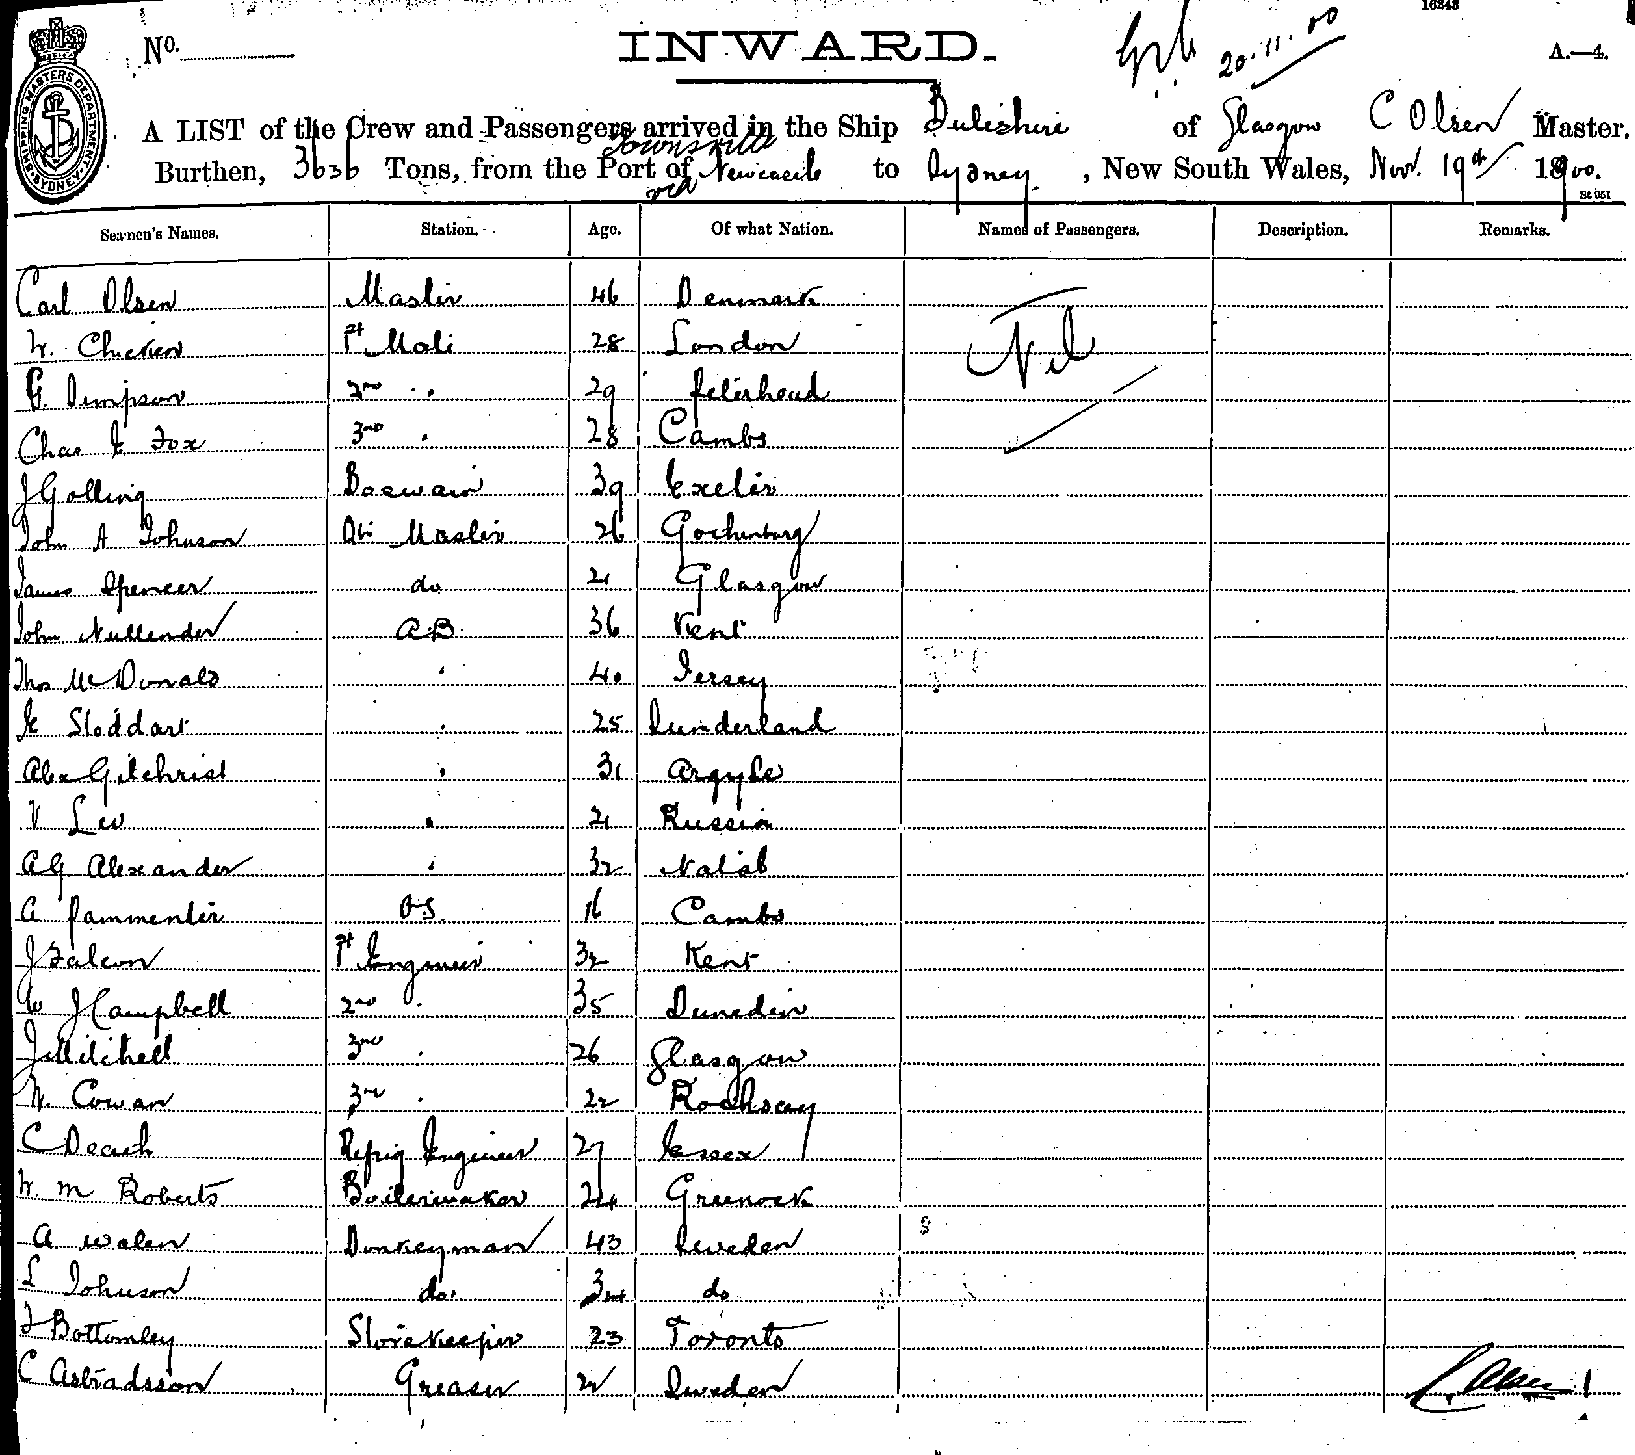 16343
No. INWARD. 20.11.00 A.—4.
SHIPPING MASTERS DEPARTMENT SYDNEY
A LIST of the Crew and Passengers arrived in the Ship Buteshire of Glasgow C Olsen Master.
Townsville
Burthen, 3636 Tons, from the Port of Newcastle to Sydney, New South Wales, Nov. 19th 1900.
via
Seamen's Names. Station. Age. Of what Nation. Names of Passengers. Description. Remarks.
Carl Olsen Master 46 Denmark Nil
W. Chicken 1st Mate 28 London
G. Simpson 2nd " 29 Peterhead
Chas E Fox 3rd " 28 Cambs
J Golling Boswain 39 Exeter
John A Johnson Qtr Master 26 Gothenburg
James Spencer do 21 Glasgow
John Nullender A.B. 36 Kent
Thos McDonald " 40 Jersey
E Stoddart " 25 Sunderland
Alex Gilchrist " 31 Argyle
V Leo " 21 Russia
A G Alexander " 32 Natal
A Pammenter OS 16 Cambs
J Falcon 1st Engineer 32 Kent
W J Campbell 2nd " 35 Dunedin
J Mitchell 3rd " 26 Glasgow
W. Cowan 3rd " 22 Rothsay
C Deach Refrig Engineer 27 Essex
W. M Roberts Boilermaker 24 Greenock
A Walen Donkeyman 43 Sweden
L Johnson do. 34 do
F Bottomley Storekeeper 23 Toronto
C Astradsson Greaser 21 Sweden C. Olsen